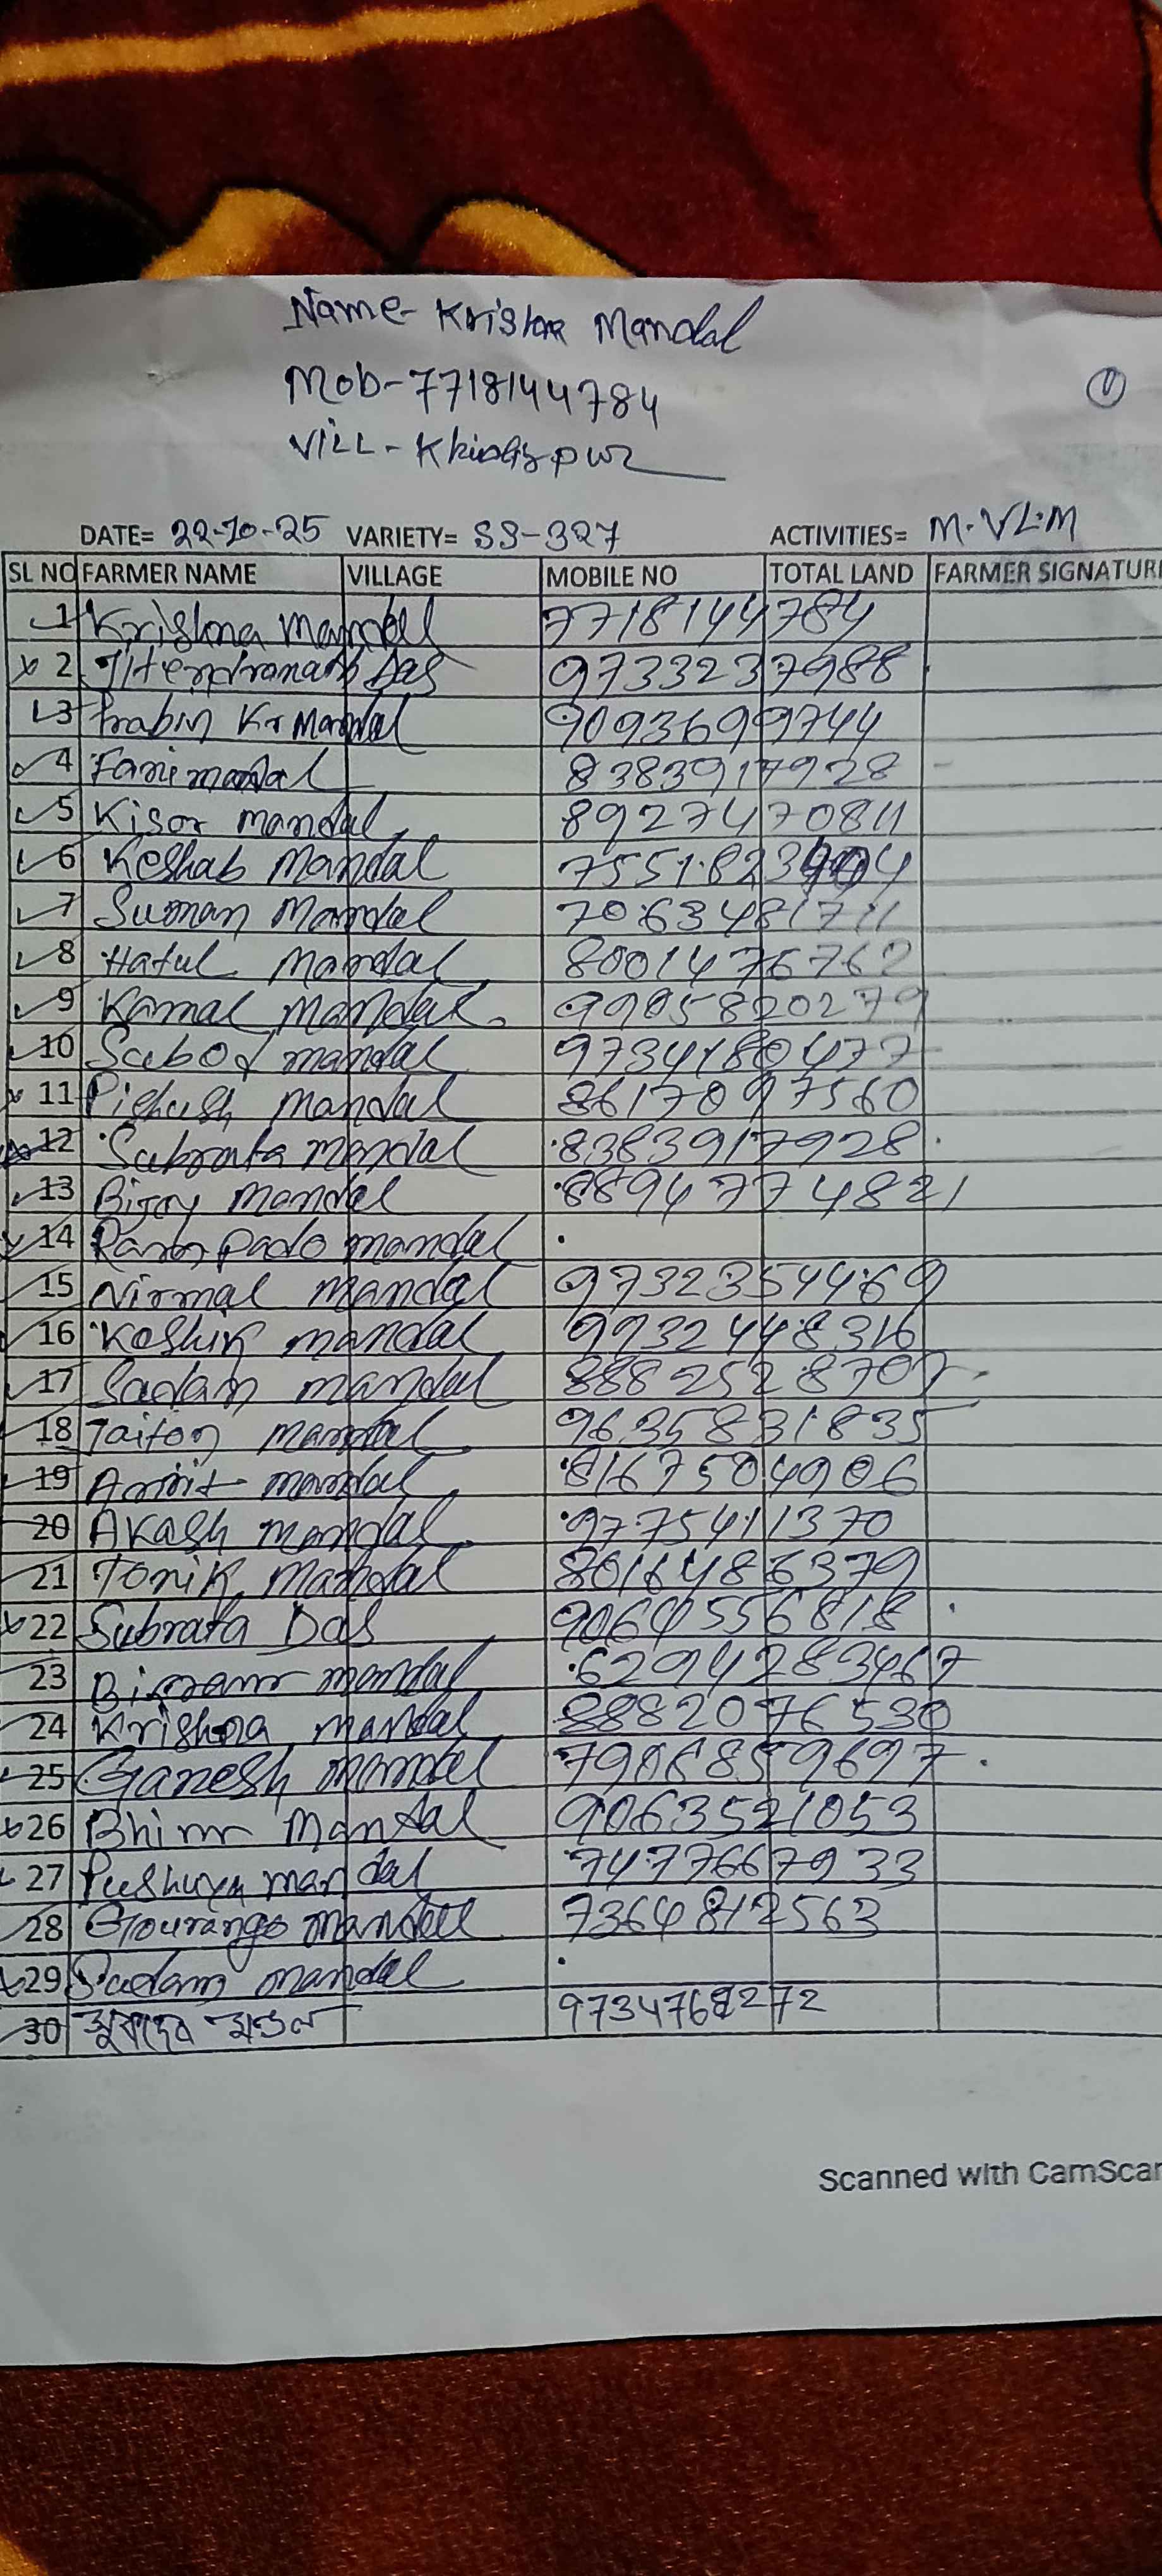 Name- Krishna Mandal
Mob-7718144784
①
VILL-
DATE= 22-10-25 VARIETY= SS-327 ACTIVITIES= M.VL.M
SL NO FARMER NAME VILLAGE MOBILE NO TOTAL LAND FARMER SIGNATUR
1 Krishna Mandal 7718144784
2 Jitendranath Das 9733237988
3 Prabin Kr Mandal 9093699744
4 Fani mandal 8383917928
5 Kisor mandal 8927470811
6 Keshab Mandal
7 Suman Mandal 7063481711
8 Hatul Mandal 8001476762
9 Kamal Mandal 9905820279
10 Subod mandal 9734180477
11 Pighush Mandal 8617097560
12 Subrata mandal 8383917928
13 Bijoy Mandal 8894774821
14 mandal
15 Nirmal mandal 9732354469
16 Koshik mandal 9932448316
17 Sadam mandal 8882528707
18 Taiton Mandal 9635831835
19 Amit mandal 8167504906
20 Akash Mandal 9775411370
21 Tonik Mandal 8016486379
22 Subrata Das 9064556818
23 mandal 6294283467
24 Krishna mandal 8882076530
25 Ganesh mandal 7906859697
26 Bhim Mandal 9063521053
27 mandal 7477667933
28 Gourango mandal 7364812563
29 mandal
30 সুকদেব মণ্ডল 9734768272
Scanned with CamScan